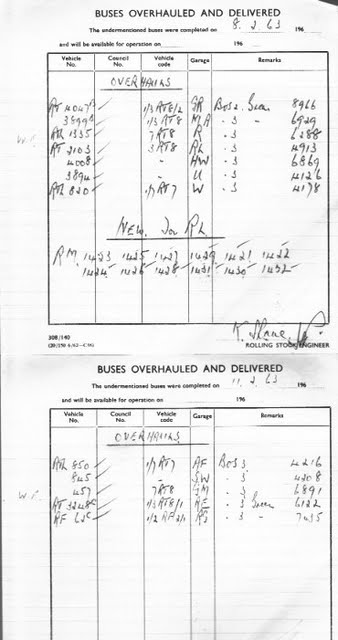 BUSES OVERHAULED AND DELIVERED
The undermentioned buses were completed on 8.2.63 196
and will be available for operation on 196
Vehicle No. Council No. Vehicle code Garage Remarks
OVERHAULS
RT 4047 1/3 RT8/2 GR Bosz. Green 8966
3899 1/3 RT8 MA . 3 " 6929
RTL 1335 7 RT8 R . 3 6288
RT 2103 3 RT8 RL . 3 4913
4008 - HW . 3 6869
3894 - U . 3 4126
RTL 820 1/7 RT7 W . 3 4178
NEW. For RL
RM. 1423 1425 1427 1429 1421 1422
1424 1426 1428 1431 1430 1432
308/140
ROLLING STOCK ENGINEER
BUSES OVERHAULED AND DELIVERED
The undermentioned buses were completed on 11.2.63 196
and will be available for operation on 196
Vehicle No. Council No. Vehicle code Garage Remarks
OVERHAULS
RTL 850 1/7 RT7 AF Bos 3 4216
845 - SW . 3 4208
457 7 RT8 GM . 3 6891
RT 3248 1/3 RT8/1 RE . 3 Green 6122
RF 62 1/2 RF 2/1 RG . 3 " 7435